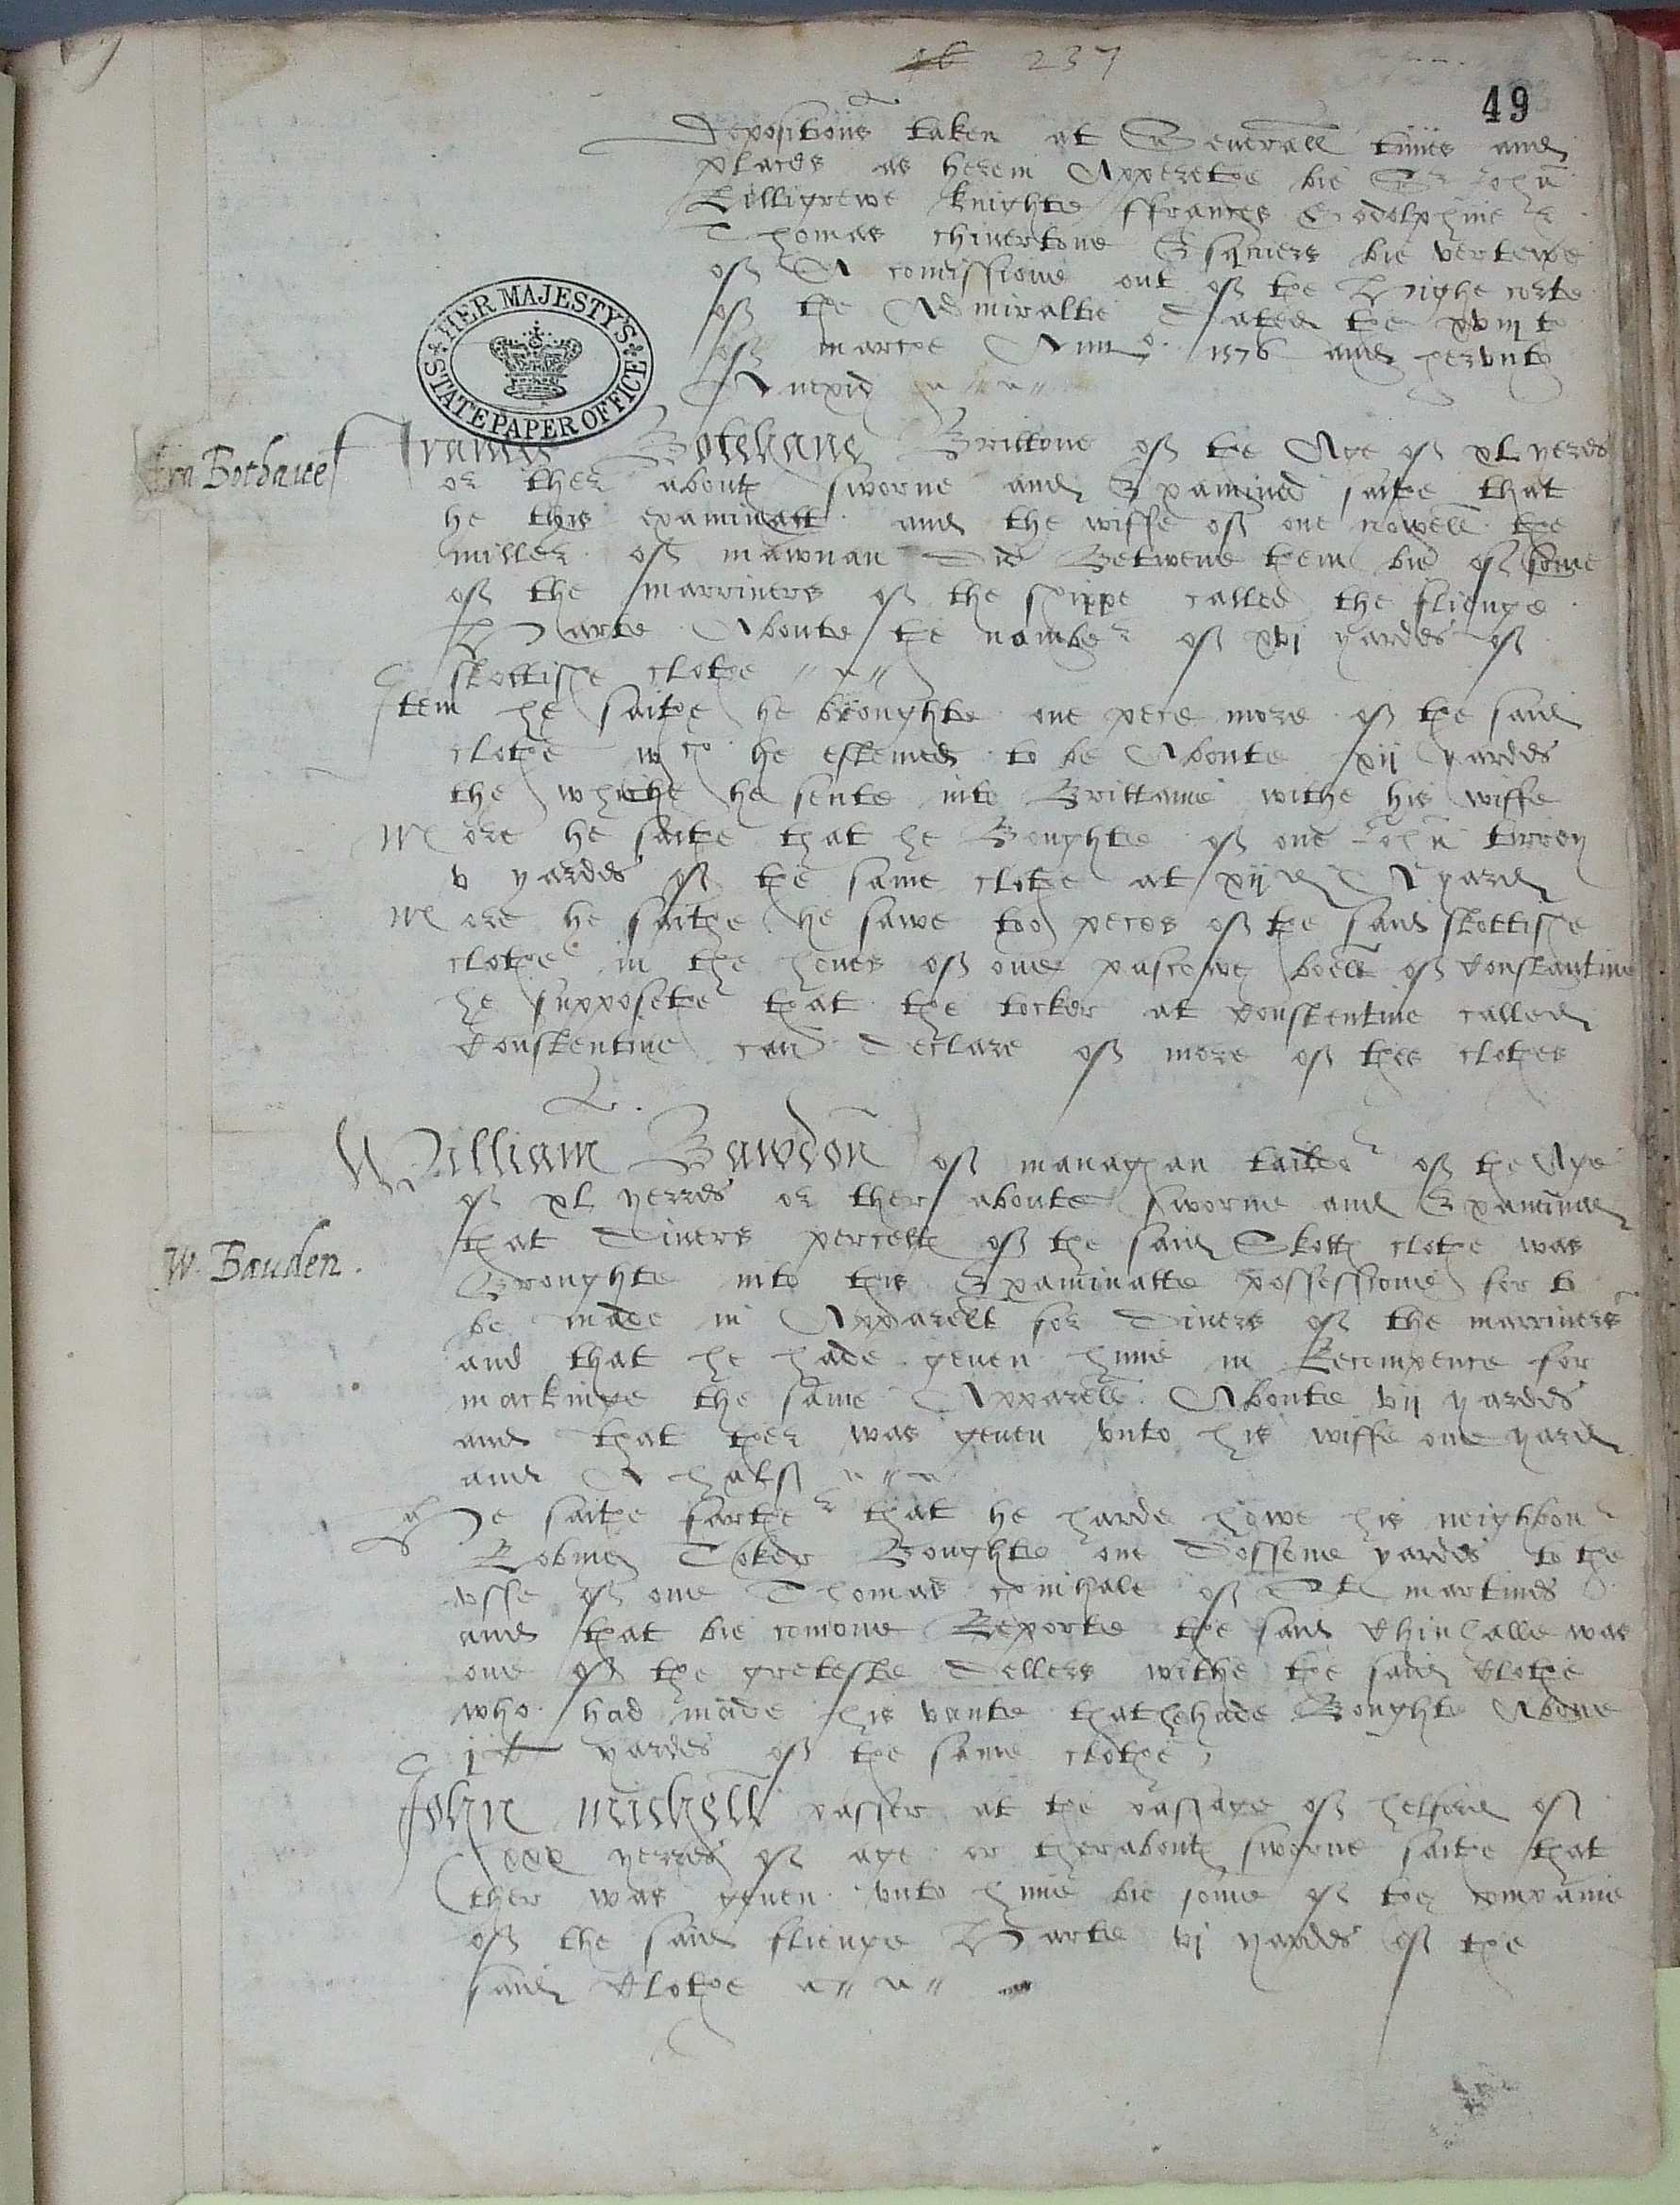 237
49
Depositiõns taken at Severall tymes and
places as herein Apperethe bie Sr John
Killigrewe knighte ffrances Godolphine &
Thomas chivertone Esquiers bie vertewe
off A comissione out off the Highe corte
off the Admiraltie Dated the xviijth
off marche Anno 1576 and herunto
Anexid
HER MAJESTY'S STATE PAPER OFFICE
Fra Bothaue
Frances Bothhane Brittone off the Age off xl yeres
or ther aboute sworne and Examined saithe that
he this examinatt and the wiffe off one nowell the
miller off mawnan Did Betwene them bie off some
off the marriners off the shippe called the flienge
Harte Aboute the number off xvj yardes off
skottishe clothe
Item he saithe he broughte one pece more off the said
clothe wch he estemed to be Aboute xij yardes
the whiche he sente into Brittanie withe his wiffe
More he saithe that he Boughte off one John tirrey
v yardes off the same clothe at xijd A yard
More he saithe he sawe too peces off the said skottishe
clothe in the houes off one pascowe boell off Constantine
he supposethe that the tocker at Constentine called
Constentine can Declare off more off thes clothes
William Bawdon off manachan tailor off the Age
off xl yerres or ther aboute sworne and Examined
W. Bauden.
that Divers percells off the said Skotts clothe was
Broughte into this Examinatte possessione for to
be made in Apparell for Divers off the marriners
and that he hade geven hime in Recompence for
mackinge the same Apparell Aboute vij yardes
and that ther was geven unto his wiffe one yard
and A halff
He saithe farther that he harde howe his neighbour
Robine Toker Boughte one Dossone yardes to the
usse off one Thomas chinhale off St martines
and that bie comone Reporte the said Chinhalle was
one off the greteste Dellers withe the said Clothe
who had made his vante that he hade Boughte Above
jc yardes off the same clothe
John michell passer at the passage off helford off
xxx yerres off age or therabout sworne saithe that
ther was geven unto hime bie some off the companie
off the said flienge Harte vj yardes off the
said Clothe